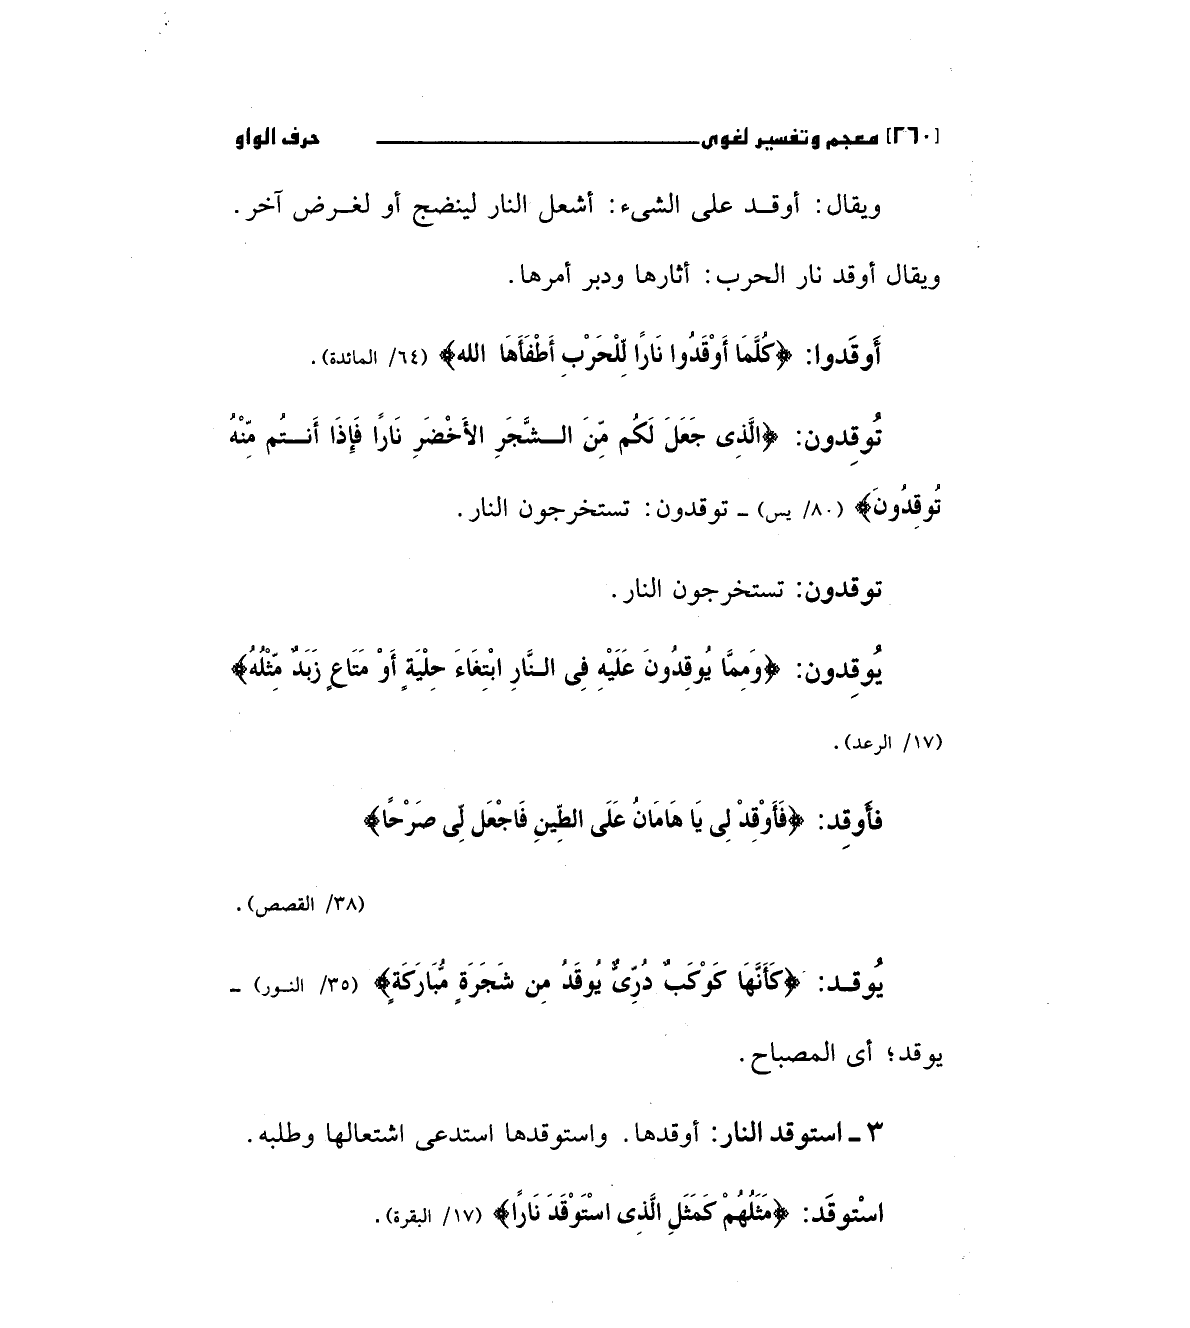 [٢٦٠] معجم وتفسير لغوى حرف الواو
ويقال: أوقد على الشىء: أشعل النار لينضج أو لغرض آخر.
ويقال أوقد نار الحرب: أثارها ودبر أمرها.
أَوقَدوا: ﴿كُلَّمَا أَوْقَدُوا نَارًا لِّلْحَرْبِ أَطْفَأَهَا الله﴾ (٦٤/ المائدة).
تُوقِدون: ﴿الَّذِى جَعَلَ لَكُم مِّنَ الشَّجَرِ الأَخْضَرِ نَارًا فَإِذَا أَنتُم مِّنْهُ
تُوقِدُونَ﴾ (٨٠/ يس) ـ توقدون: تستخرجون النار.
توقدون: تستخرجون النار.
يُوقِدون: ﴿وَمِمَّا يُوقِدُونَ عَلَيْهِ فِى النَّارِ ابْتِغَاءَ حِلْيَةٍ أَوْ مَتَاعٍ زَبَدٌ مِّثْلُهُ﴾
(١٧/ الرعد).
فأَوقِد: ﴿فَأَوْقِدْ لِى يَا هَامَانُ عَلَى الطِّينِ فَاجْعَل لِّى صَرْحًا﴾
(٣٨/ القصص).
يُوقد: ﴿كَأَنَّهَا كَوْكَبٌ دُرِّىٌّ يُوقَدُ مِن شَجَرَةٍ مُّبَارَكَةٍ﴾ (٣٥/ النور) ـ
يوقد؛ أى المصباح.
٣ ـ استوقد النار: أوقدها. واستوقدها استدعى اشتعالها وطلبه.
اسْتوقَد: ﴿مَثَلُهُمْ كَمَثَلِ الَّذِى اسْتَوْقَدَ نَارًا﴾ (١٧/ البقرة).